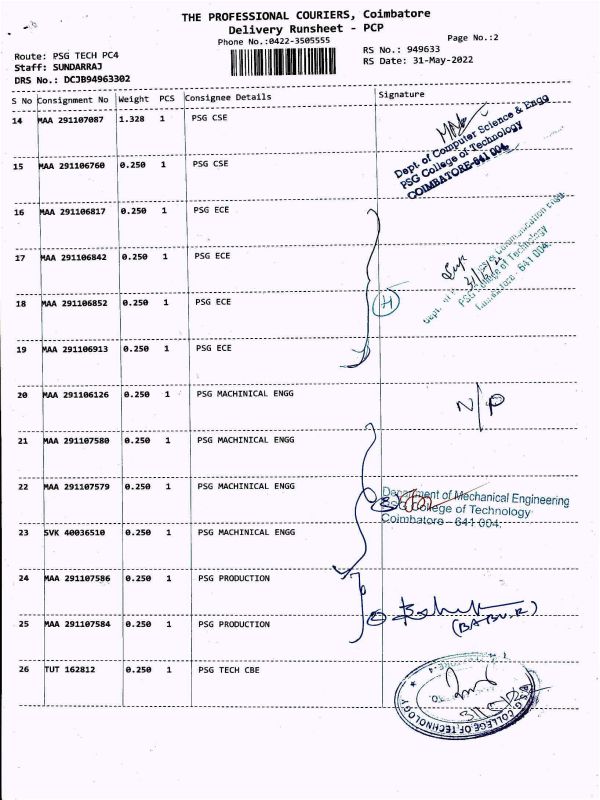 THE PROFESSIONAL COURIERS, Coimbatore
Delivery Runsheet - PCP
Phone No.:0422-3505555
Page No.:2
Route: PSG TECH PC4
RS No.: 949633
Staff: SUNDARRAJ
RS Date: 31-May-2022
DRS No.: DCJB94963302
S No Consignment No Weight PCS Consignee Details Signature
14 MAA 291107087 1.328 1 PSG CSE
Dept. of Computer Science & Engg
PSG College of Technology
COIMBATORE-641 004.
15 MAA 291106760 0.250 1 PSG CSE
16 MAA 291106817 0.250 1 PSG ECE
17 MAA 291106842 0.250 1 PSG ECE
PSG College of Technology
Coimbatore - 641 004.
18 MAA 291106852 0.250 1 PSG ECE
4
19 MAA 291106913 0.250 1 PSG ECE
20 MAA 291106126 0.250 1 PSG MACHINICAL ENGG
N/P
21 MAA 291107580 0.250 1 PSG MACHINICAL ENGG
22 MAA 291107579 0.250 1 PSG MACHINICAL ENGG
Department of Mechanical Engineering
PSG College of Technology
Coimbatore - 641 004.
23 SVK 40036510 0.250 1 PSG MACHINICAL ENGG
24 MAA 291107586 0.250 1 PSG PRODUCTION
25 MAA 291107584 0.250 1 PSG PRODUCTION
(BABU.R)
26 TUT 162812 0.250 1 PSG TECH CBE
P.S.G. COLLEGE OF TECHNOLOGY